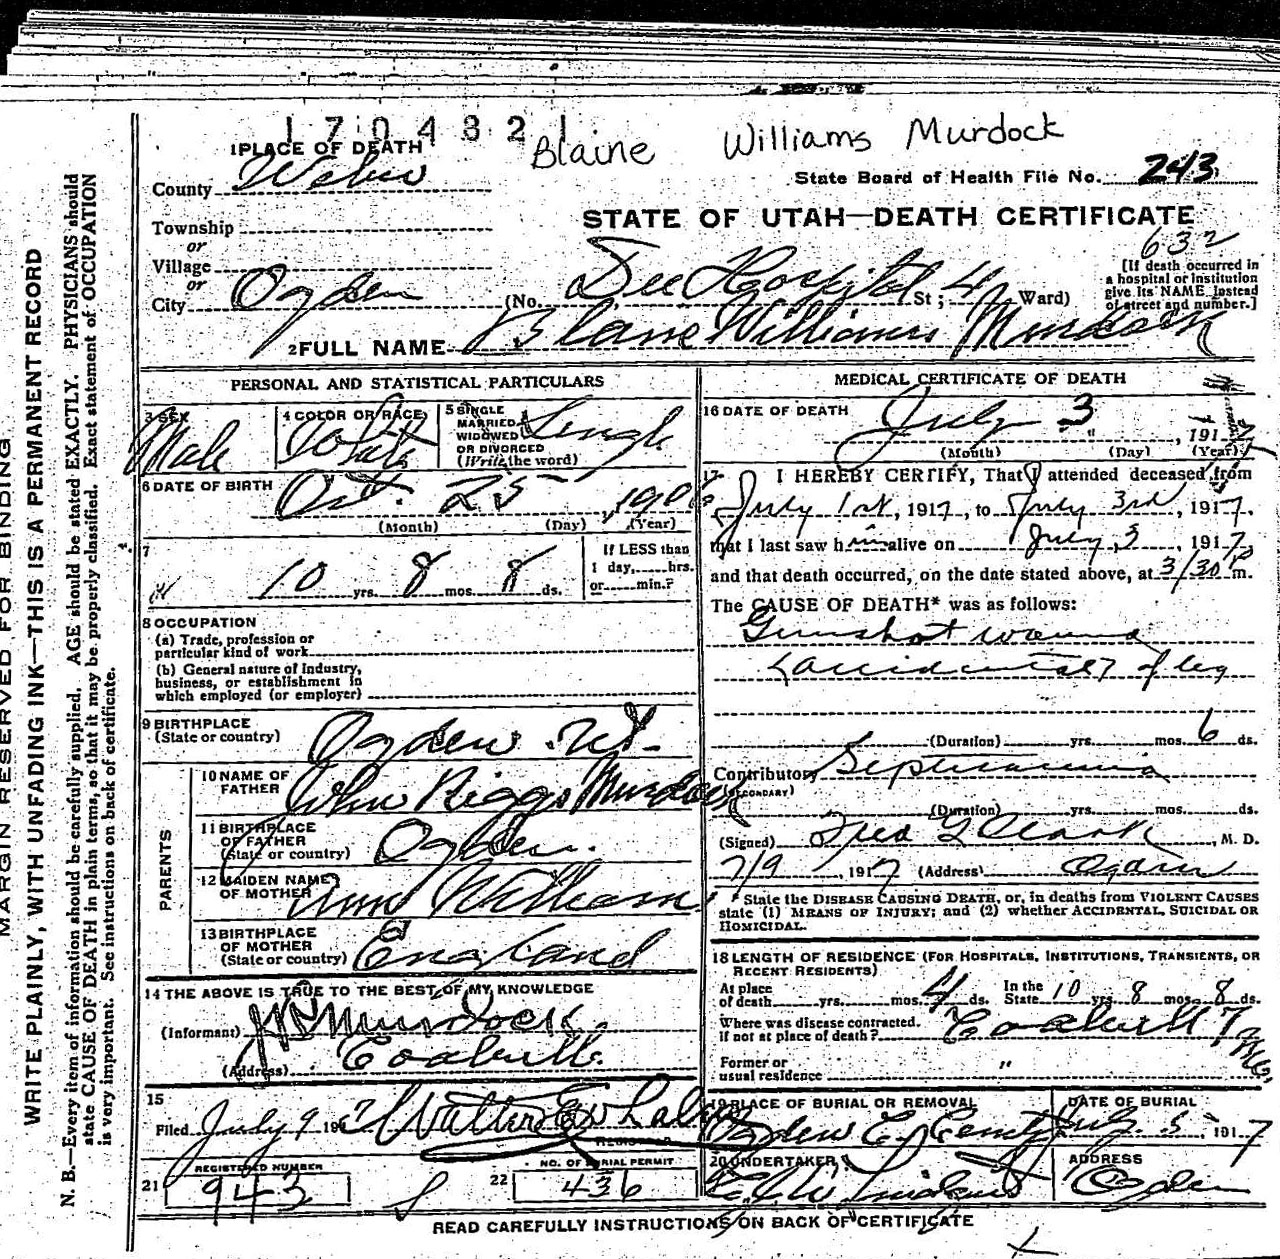 1704821
Blaine Williams Murdock
1 PLACE OF DEATH
County Weber
State Board of Health File No. 243
STATE OF UTAH—DEATH CERTIFICATE
Township
or
Village
or
632
[If death occurred in a hospital or institution give its NAME instead of street and number.]
City Ogden (No. Dee Hospital St; 4 Ward)
2 FULL NAME Blaine Williams Murdock
PERSONAL AND STATISTICAL PARTICULARS
3 SEX Male
4 COLOR OR RACE White
5 SINGLE MARRIED WIDOWED OR DIVORCED (Write the word) Single
6 DATE OF BIRTH Oct. 25, 1906
(Month) (Day) (Year)
7
10 yrs. 8 mos. 8 ds.
If LESS than 1 day, hrs. or min.?
8 OCCUPATION
(a) Trade, profession or particular kind of work
(b) General nature of industry, business, or establishment in which employed (or employer)
9 BIRTHPLACE (State or country) Ogden Ut.
PARENTS
10 NAME OF FATHER John Riggs Murdock
11 BIRTHPLACE OF FATHER (State or country) Ogden.
12 MAIDEN NAME OF MOTHER Ann Williams
13 BIRTHPLACE OF MOTHER (State or country) England
14 THE ABOVE IS TRUE TO THE BEST OF MY KNOWLEDGE
(Informant) J R Murdock.
(Address) Coalville.
15
Filed July 9 1917 Walter E Whalen
REGISTRAR
REGISTERED NUMBER
21 943
NO. OF BURIAL PERMIT
22 436
MEDICAL CERTIFICATE OF DEATH
16 DATE OF DEATH July 3, 1917
(Month) (Day) (Year)
17 I HEREBY CERTIFY, That I attended deceased from
July 1st, 1917, to July 3rd, 1917,
that I last saw him alive on July 3, 1917,
and that death occurred, on the date stated above, at 3/30 P m.
The CAUSE OF DEATH* was as follows:
Gunshot wound
(accidental) of leg
(Duration) yrs. mos. 6 ds.
Contributory Septicaemia
(SECONDARY)
(Duration) yrs. mos. ds.
(Signed) Fred Clark, M. D.
7/9, 1917 (Address) Ogden
* State the DISEASE CAUSING DEATH, or, in deaths from VIOLENT CAUSES state (1) MEANS OF INJURY; and (2) whether ACCIDENTAL, SUICIDAL OR HOMICIDAL.
18 LENGTH OF RESIDENCE (FOR HOSPITALS, INSTITUTIONS, TRANSIENTS, OR RECENT RESIDENTS)
At place of death yrs. mos. 4 ds. In the State 10 yrs. 8 mos. 8 ds.
Where was disease contracted. if not at place of death? Coalville
Former or usual residence "
19 PLACE OF BURIAL OR REMOVAL Ogden City Cemetery
DATE OF BURIAL July 5, 1917
20 UNDERTAKER
ADDRESS Ogden
READ CAREFULLY INSTRUCTIONS ON BACK OF CERTIFICATE
MARGIN RESERVED FOR BINDING
WRITE PLAINLY, WITH UNFADING INK—THIS IS A PERMANENT RECORD
N. B.—Every item of information should be carefully supplied. AGE should be stated EXACTLY. PHYSICIANS should
state CAUSE OF DEATH in plain terms, so that it may be properly classified. Exact statement of OCCUPATION
is very important. See instructions on back of certificate.